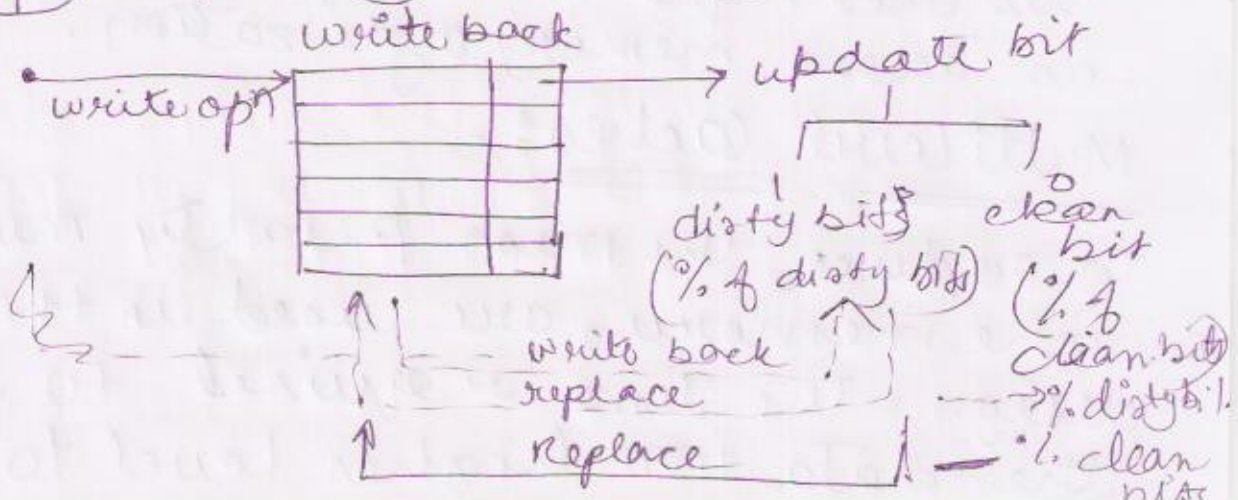 write back
write opn
update bit
1
0
dirty bits
clean
bit
(% of dirty bits)
(% of
clean bits)
write back
replace
% dirty bit
Replace
% clean
bits